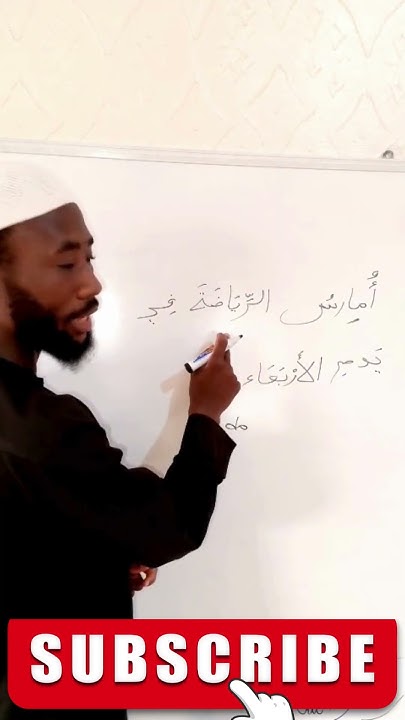 أُمارِسُ الرِّيَاضَةَ فِي
يَومِ الأَرْبَعَاء
SUBSCRIBE